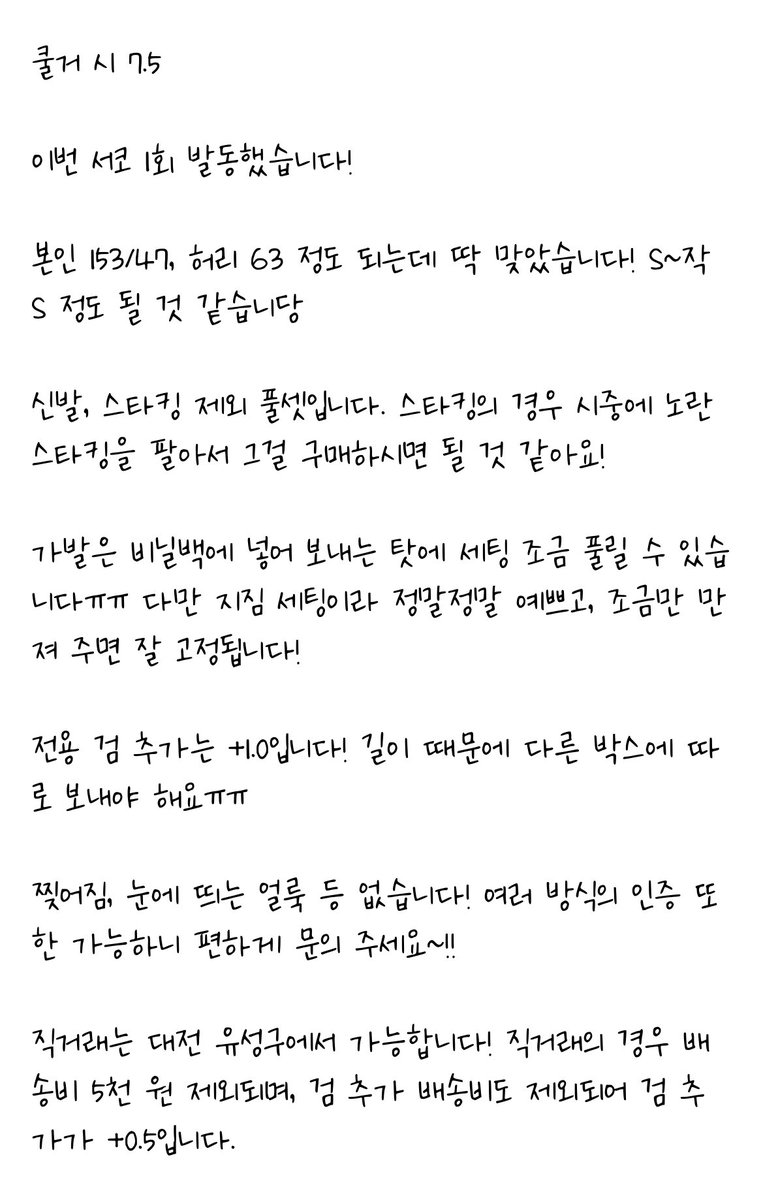 쿨거 시 7.5
이번 서코 1회 발동했습니다!
본인 153/47, 허리 63 정도 되는데 딱 맞았습니다! S~작
S 정도 될 것 같습니당
신발, 스타킹 제외 풀셋입니다. 스타킹의 경우 시중에 노란
스타킹을 팔아서 그걸 구매하시면 될 것 같아요!
가발은 비닐백에 넣어 보내는 탓에 세팅 조금 풀릴 수 있습
니다ㅠㅠ 다만 지짐 세팅이라 정말정말 예쁘고, 조금만 만
져 주면 잘 고정됩니다!
전용 검 추가는 +1.0입니다! 길이 때문에 다른 박스에 따
로 보내야 해요ㅠㅠ
찢어짐, 눈에 띄는 얼룩 등 없습니다! 여러 방식의 인증 또
한 가능하니 편하게 문의 주세요~!!
직거래는 대전 유성구에서 가능합니다! 직거래의 경우 배
송비 5천 원 제외되며, 검 추가 배송비도 제외되어 검 추
가가 +0.5입니다.